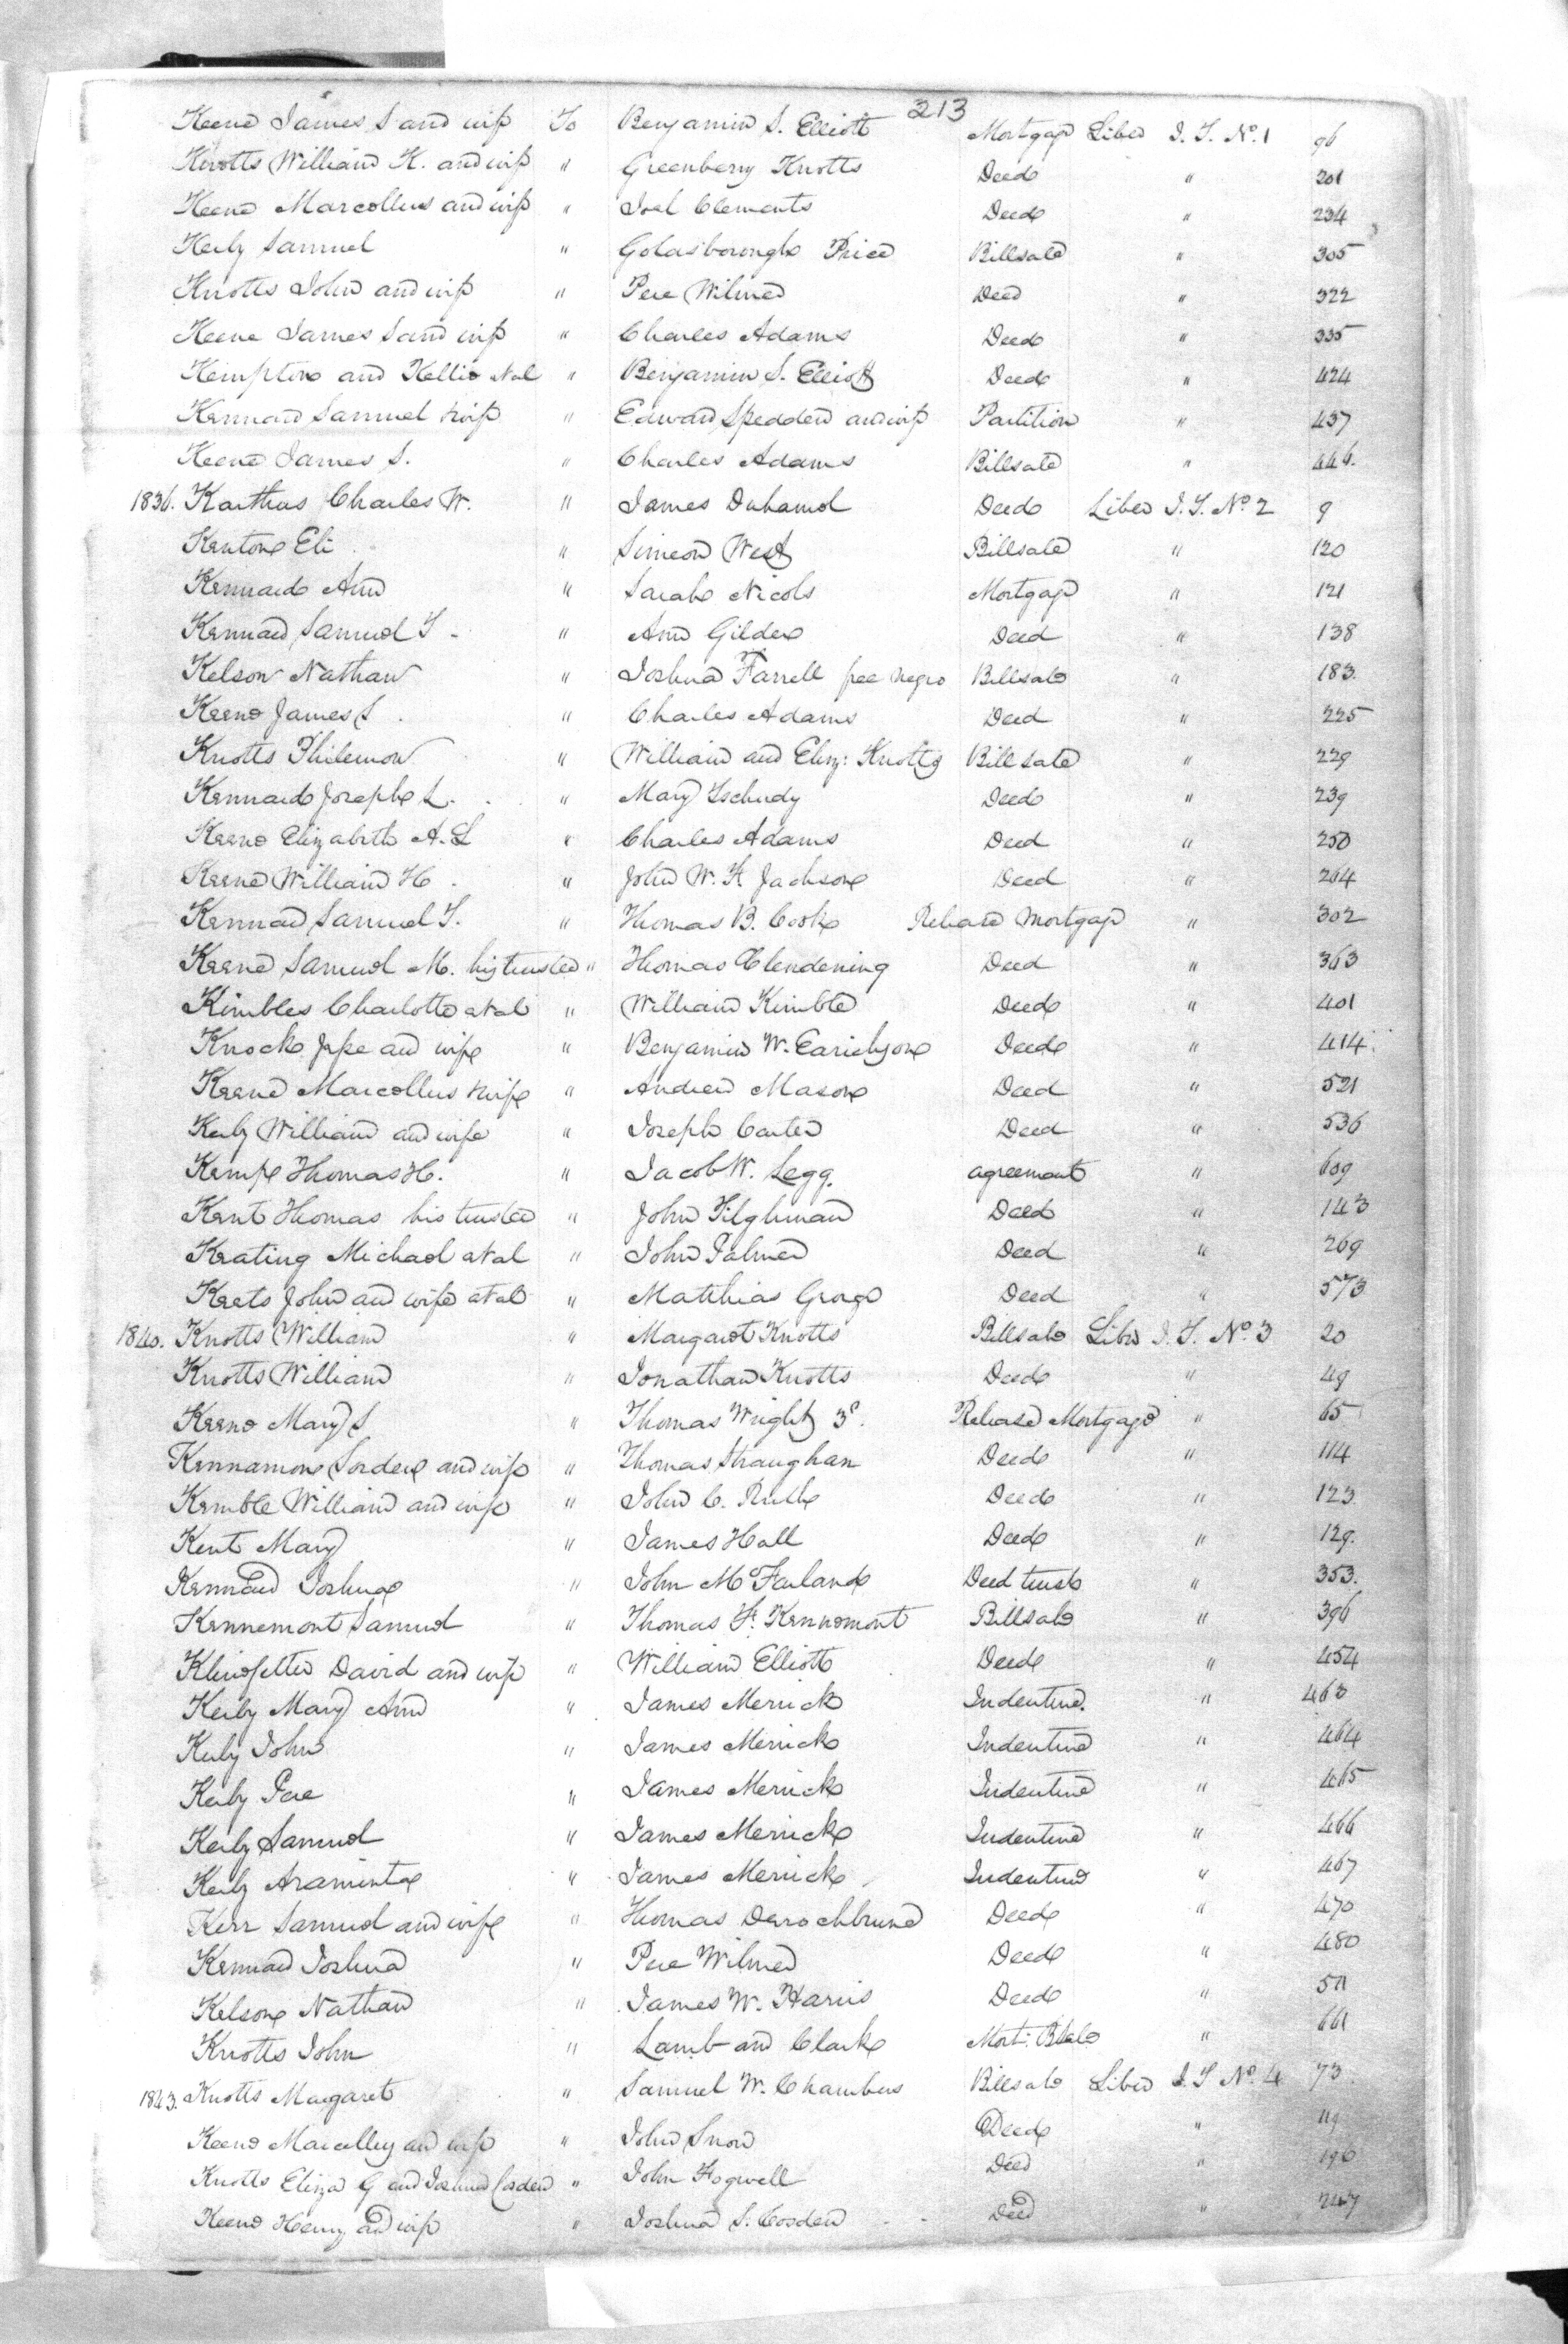 213
Keene James S and wife To Benjamin S. Elliott Mortgage Liber I. T. No. 1 96
Knotts William K. and wife " Greenberry Knotts Deed " 201
Keene Marcellus and wife " Joel Clements Deed " 234
Keily Samuel " Goldsborough Price Billsale " 305
Knotts John and wife " Pere Wilmer Deed " 322
Keene James S and wife " Charles Adams Deed " 335
Kempton and Kellie et al " Benjamin S. Elliott Deed " 424
Kennard Samuel & wife " Edward Spedden and wife Partition " 437
Keene James S. " Charles Adams Billsale " 446.
1836. Karthus Charles W. " James Duhamel Deed Liber I. T. No. 2 9
Kenton Eli " Simeon West Billsale " 120
Kennard Ann " Sarah Nicols Mortgage " 121
Kennard Samuel T - " Ann Gilder Deed " 138
Kelson Nathan " Joshua Farrell free negro Billsale " 183.
Keene James S. " Charles Adams Deed " 225
Knotts Philemon " William and Eliz: Knotts Bill sale " 229
Kennard Joseph L. " Mary Tschudy Deed " 239
Keene Elizabeth A. L " Charles Adams Deed " 250
Keene William H. " John W. K. Jackson Deed " 264
Kennard Samuel T. " Thomas B. Cook Release Mortgage " 302
Keene Samuel M. his trustee " Thomas Clendening Deed " 363
Kimbles Charlotte et al " William Kimble Deed " 401
Knock Jesse and wife " Benjamin W. Earickson Deed " 414.
Keene Marcellus & wife " Andrew Mason Deed " 521
Keily William and wife " Joseph Carter Deed " 536
Kemp Thomas H. " Jacob W. Legg. agreement " 609
Kent Thomas his trustee " John Tilghman Deed " 143
Keating Michael et al " John Palmer Deed " 269
Keets John and wife et al " Matthias George Deed " 573
1840. Knotts William " Margaret Knotts Billsale Liber I. T. No. 3 20
Knotts William " Jonathan Knotts Deed " 49
Keene Mary S " Thomas Wright 3d. Release Mortgage " 65
Kennamon Sordon and wife " Thomas Straughan Deed " 114
Kemble William and wife " John C. Ruth Deed " 123.
Kent Mary " James Hall Deed " 129.
Kennard Joshua " John McFarland Deed trust " 353.
Kennemont Samuel " Thomas F. Kennemont Billsale " 396
David and wife " William Elliott Deed " 454
Keily Mary Ann " James Merrick Indenture. " 463
Keily John " James Merrick Indenture " 464
Keily Pere " James Merrick Indenture " 465
Keily Samuel " James Merrick Indenture " 466
Keily Araminta " James Merrick Indenture " 467
Kerr Samuel and wife " Thomas Derochbrune Deed " 470
Kennard Joshua " Pere Wilmer Deed " 480
Kelson Nathan " James W. Harris Deed " 511
Knotts John " Lamb and Clark Mort: B.sale " 661
1843. Knotts Margaret " Samuel W. Chambers Billsale Liber I. T No. 4 73.
Keene Marcellus and wife " John Snow Deed " 119
Knotts Eliza G and Joshua Cosden " John Fogwell Deed " 196
Keene Henry and wife " Joshua S. Cosden - - Deed " 247